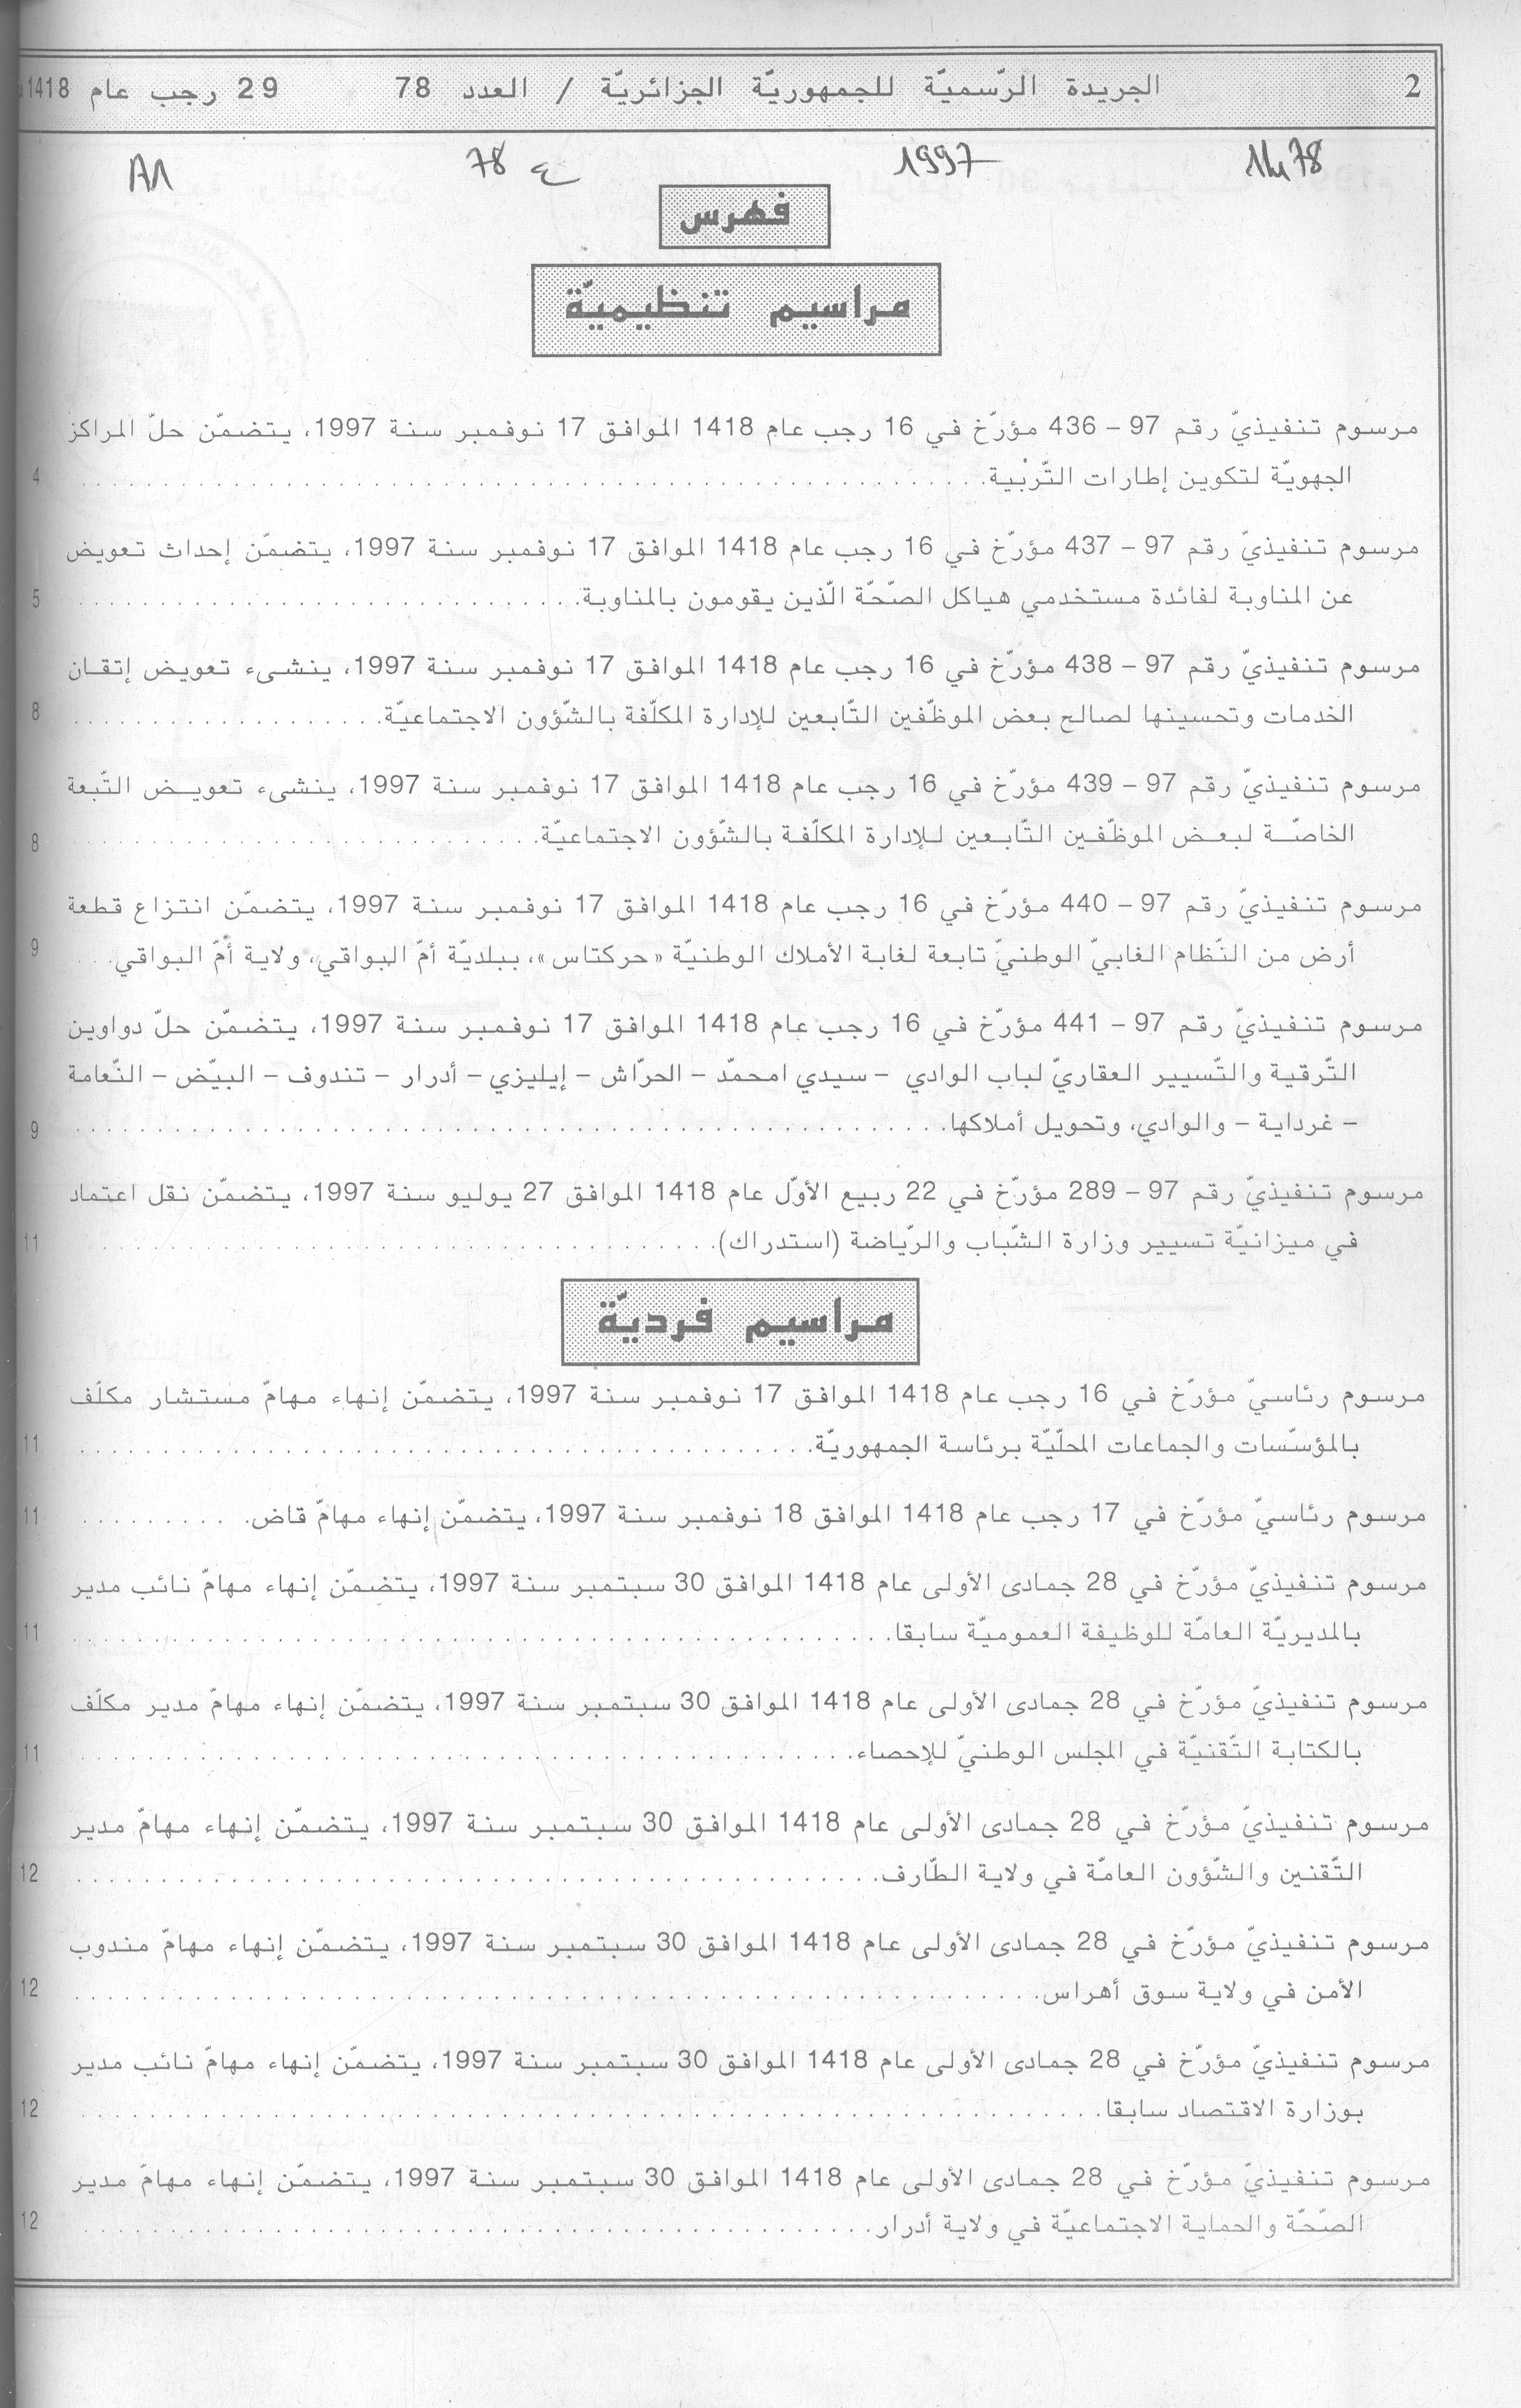 2 الجريدة الرّسميّة للجمهوريّة الجزائريّة / العدد 78 29 رجب عام 1418
1997 ع 78
فهرس
مراسيم تنظيميّة
مرسوم تنفيذيّ رقم 97 – 436 مؤرّخ في 16 رجب عام 1418 الموافق 17 نوفمبر سنة 1997، يتضمّن حلّ المراكز
الجهويّة لتكوين إطارات التّربية. 4
مرسوم تنفيذيّ رقم 97 – 437 مؤرّخ في 16 رجب عام 1418 الموافق 17 نوفمبر سنة 1997، يتضمّن إحداث تعويض
عن المناوبة لفائدة مستخدمي هياكل الصّحّة الّذين يقومون بالمناوبة. 5
مرسوم تنفيذيّ رقم 97 – 438 مؤرّخ في 16 رجب عام 1418 الموافق 17 نوفمبر سنة 1997، ينشىء تعويض إتقان
الخدمات وتحسينها لصالح بعض الموظّفين التّابعين للإدارة المكلّفة بالشّؤون الاجتماعيّة. 8
مرسوم تنفيذيّ رقم 97 – 439 مؤرّخ في 16 رجب عام 1418 الموافق 17 نوفمبر سنة 1997، ينشىء تعويض التّبعة
الخاصّة لبعض الموظّفين التّابعين للإدارة المكلّفة بالشّؤون الاجتماعيّة. 8
مرسوم تنفيذيّ رقم 97 – 440 مؤرّخ في 16 رجب عام 1418 الموافق 17 نوفمبر سنة 1997، يتضمّن انتزاع قطعة
أرض من النّظام الغابيّ الوطنيّ تابعة لغابة الأملاك الوطنيّة «حركتاس»، ببلديّة أمّ البواقي، ولاية أمّ البواقي. 9
مرسوم تنفيذيّ رقم 97 – 441 مؤرّخ في 16 رجب عام 1418 الموافق 17 نوفمبر سنة 1997، يتضمّن حلّ دواوين
التّرقية والتّسيير العقاريّ لباب الوادي – سيدي امحمّد – الحرّاش – إيليزي – أدرار – تندوف – البيّض – النّعامة
– غرداية – والوادي، وتحويل أملاكها. 9
مرسوم تنفيذيّ رقم 97 – 289 مؤرّخ في 22 ربيع الأوّل عام 1418 الموافق 27 يوليو سنة 1997، يتضمّن نقل اعتماد
في ميزانيّة تسيير وزارة الشّباب والرّياضة (استدراك). 11
مراسيم فرديّة
مرسوم رئاسيّ مؤرّخ في 16 رجب عام 1418 الموافق 17 نوفمبر سنة 1997، يتضمّن إنهاء مهامّ مستشار مكلّف
بالمؤسّسات والجماعات المحلّيّة برئاسة الجمهوريّة. 11
مرسوم رئاسيّ مؤرّخ في 17 رجب عام 1418 الموافق 18 نوفمبر سنة 1997، يتضمّن إنهاء مهامّ قاض. 11
مرسوم تنفيذيّ مؤرّخ في 28 جمادى الأولى عام 1418 الموافق 30 سبتمبر سنة 1997، يتضمّن إنهاء مهامّ نائب مدير
بالمديريّة العامّة للوظيفة العموميّة سابقا. 11
مرسوم تنفيذيّ مؤرّخ في 28 جمادى الأولى عام 1418 الموافق 30 سبتمبر سنة 1997، يتضمّن إنهاء مهامّ مدير مكلّف
بالكتابة التّقنيّة في المجلس الوطنيّ للإحصاء. 11
مرسوم تنفيذيّ مؤرّخ في 28 جمادى الأولى عام 1418 الموافق 30 سبتمبر سنة 1997، يتضمّن إنهاء مهامّ مدير
التّقنين والشّؤون العامّة في ولاية الطّارف. 12
مرسوم تنفيذيّ مؤرّخ في 28 جمادى الأولى عام 1418 الموافق 30 سبتمبر سنة 1997، يتضمّن إنهاء مهامّ مندوب
الأمن في ولاية سوق أهراس. 12
مرسوم تنفيذيّ مؤرّخ في 28 جمادى الأولى عام 1418 الموافق 30 سبتمبر سنة 1997، يتضمّن إنهاء مهامّ نائب مدير
بوزارة الاقتصاد سابقا. 12
مرسوم تنفيذيّ مؤرّخ في 28 جمادى الأولى عام 1418 الموافق 30 سبتمبر سنة 1997، يتضمّن إنهاء مهامّ مدير
الصّحّة والحماية الاجتماعيّة في ولاية أدرار. 12